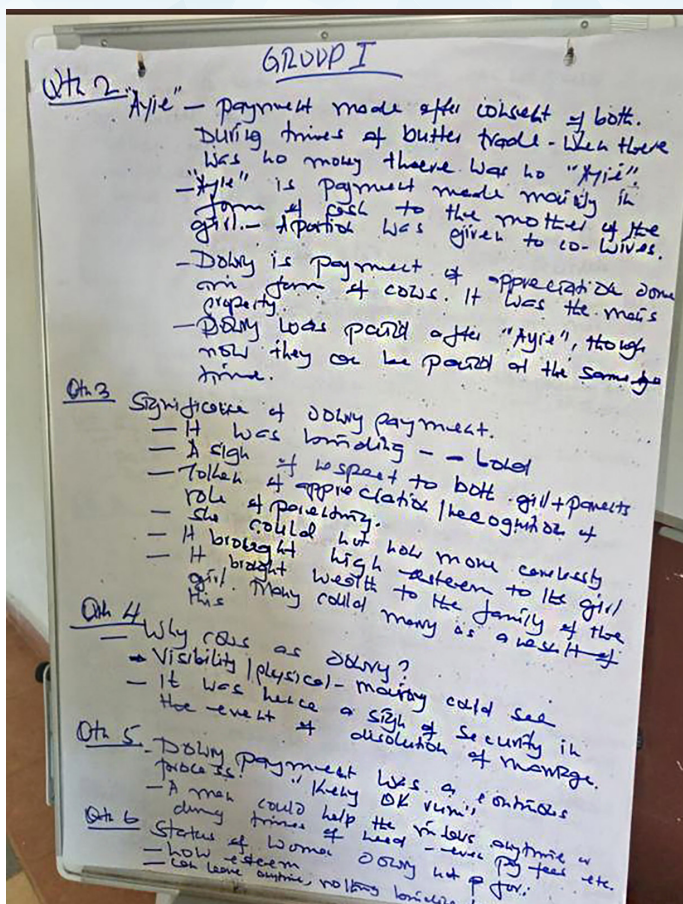 GROUP I
Qtn 2
"Ayie" – payment made after consent of both.
During times of butter trade - when there
was no money there was no "Ayie".
– "Ayie" is payment made mainly in
form of cash to the mother of the
girl. – A portion was given to co-wives.
– Dowry is payment of appreciation done
in form of cows. It was the main
property.
– Dowry was paid after "Ayie", though
now they can be paid at the same
time.
Qtn 3
Significance of dowry payment.
– It was binding – – bond
– A sign of respect to both girl + parents
– Token of appreciation / recognition of
role of parenting.
– She could not now move carelessly
– It brought high esteem to the girl
– It brought wealth to the family of the
girl. Many could marry as a result of
this
Qtn 4
– Why cows as dowry?
– Visibility / physical – many could see
– It was hence a sign of security in
the event of disolution of marriage.
Qtn 5
– Dowry payment was a continous
process!
– A man could help the inlaws anytime
during times of need – even pay fees etc.
Qtn 6
Status of women dowry not p for:
– Low esteem
– can leave anytime, nothing